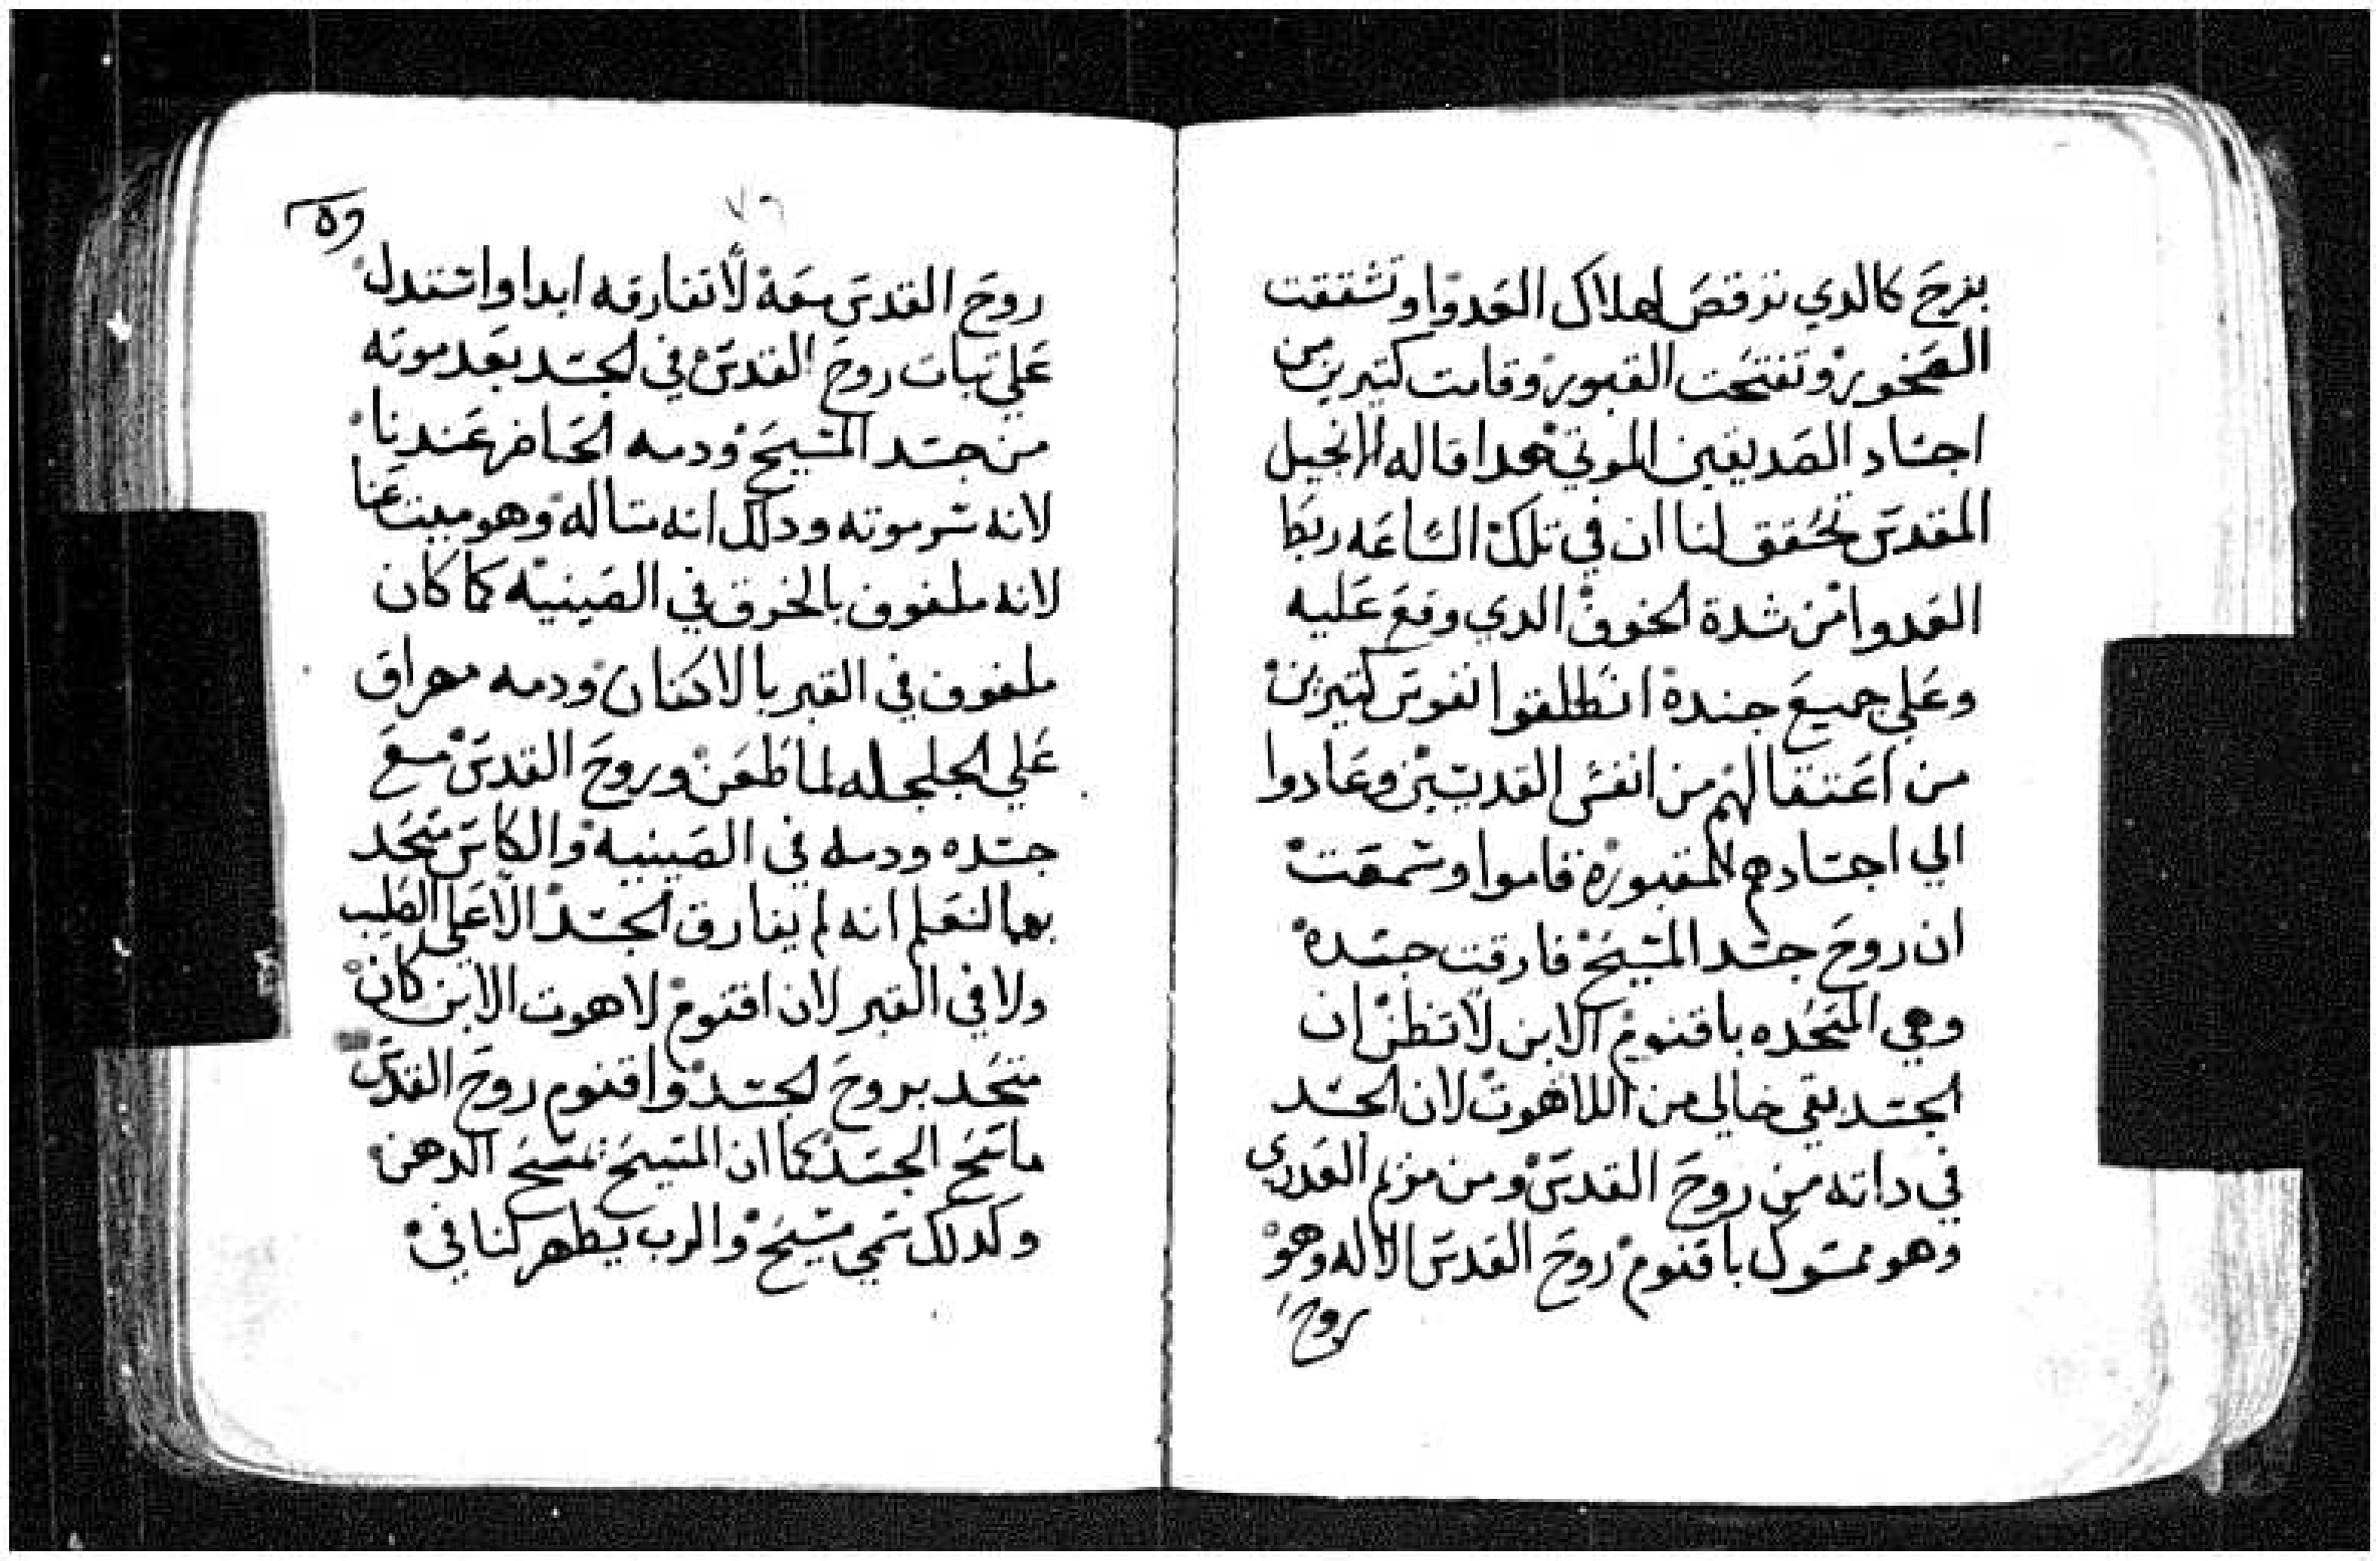 بفرح كالدي ترقص لهلاك العدوا وتشققت
الصخور وتفتحت القبور وقامت كتيرين من
اجساد الصديقين الموتي هدا قاله الانجيل
المقدس تحقق لنا ان في تلك الساعه ربط
العدوا من شدة الخوف الدي وقع عليه
وعلي جميع جنده انطلقوا نفوس كتيرين
من اعتقالهم من انفس القديسين وعادوا
الي اجسادهم المقبورة فقاموا وسمعت
ان روح جسد المسيح فارقت جسده
وهي المتحده باقنوم الابن لا تظن ان
الجسد بقي خالي من اللاهوت لان الجسد
في داته من روح القدس ومن مريم العدري
وهو ممسوك باقنوم روح القدس الاله وهو
روح
وه
٧٦
روح القدس معه لا تفارقه ابدا واستدل
علي تبات روح القدس في الجسد بعد موته
من جسد المسيح ودمه الحاضر عندنا
لانه سر موته ودلك انه متاله وهو ميت عنا
لانه ملفوف بالخرق في الصينيه كما كان
ملفوف في القبر بالاكفان ودمه مهراق
علي الجلجله لما طعن وروح القدس مع
جسده ودمه في الصينيه والكاس متحد
بهما لنعلم انه لم يفارق الجسد لا علي الصليب
ولا في القبر لان اقنوم لاهوت الابن كان
متحد بروح الجسد واقنوم روح القدس
ماسح الجسد كما ان المسيح تمسح الدهن
وكدلك سمي مسيح والرب يطهر لنا في